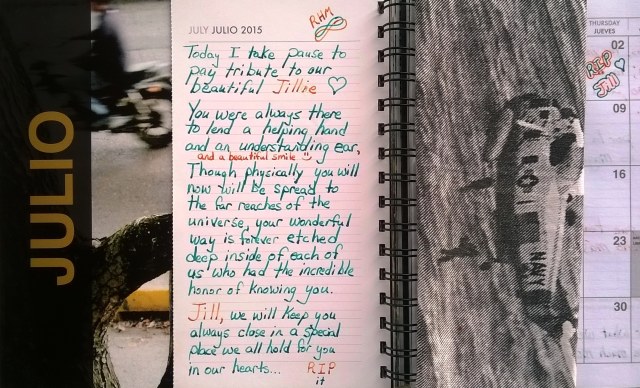 JULIO
JULY JULIO 2015
RHM
Today I take pause to
pay tribute to our
beautiful Jillie
You were always there
to lend a helping hand
and an understanding ear,
and a beautiful smile
Though physically you will
now will be spread to
the far reaches of the
universe, your wonderful
way is forever etched
deep inside of each of
us who had the incredible
honor of knowing you.
Jill, we will keep you
always close in a special
place we all hold for you
in our hearts... RIP
it
101
NAVY
THURSDAY
JUEVES
02
RIP
Jill
09
16
23
30